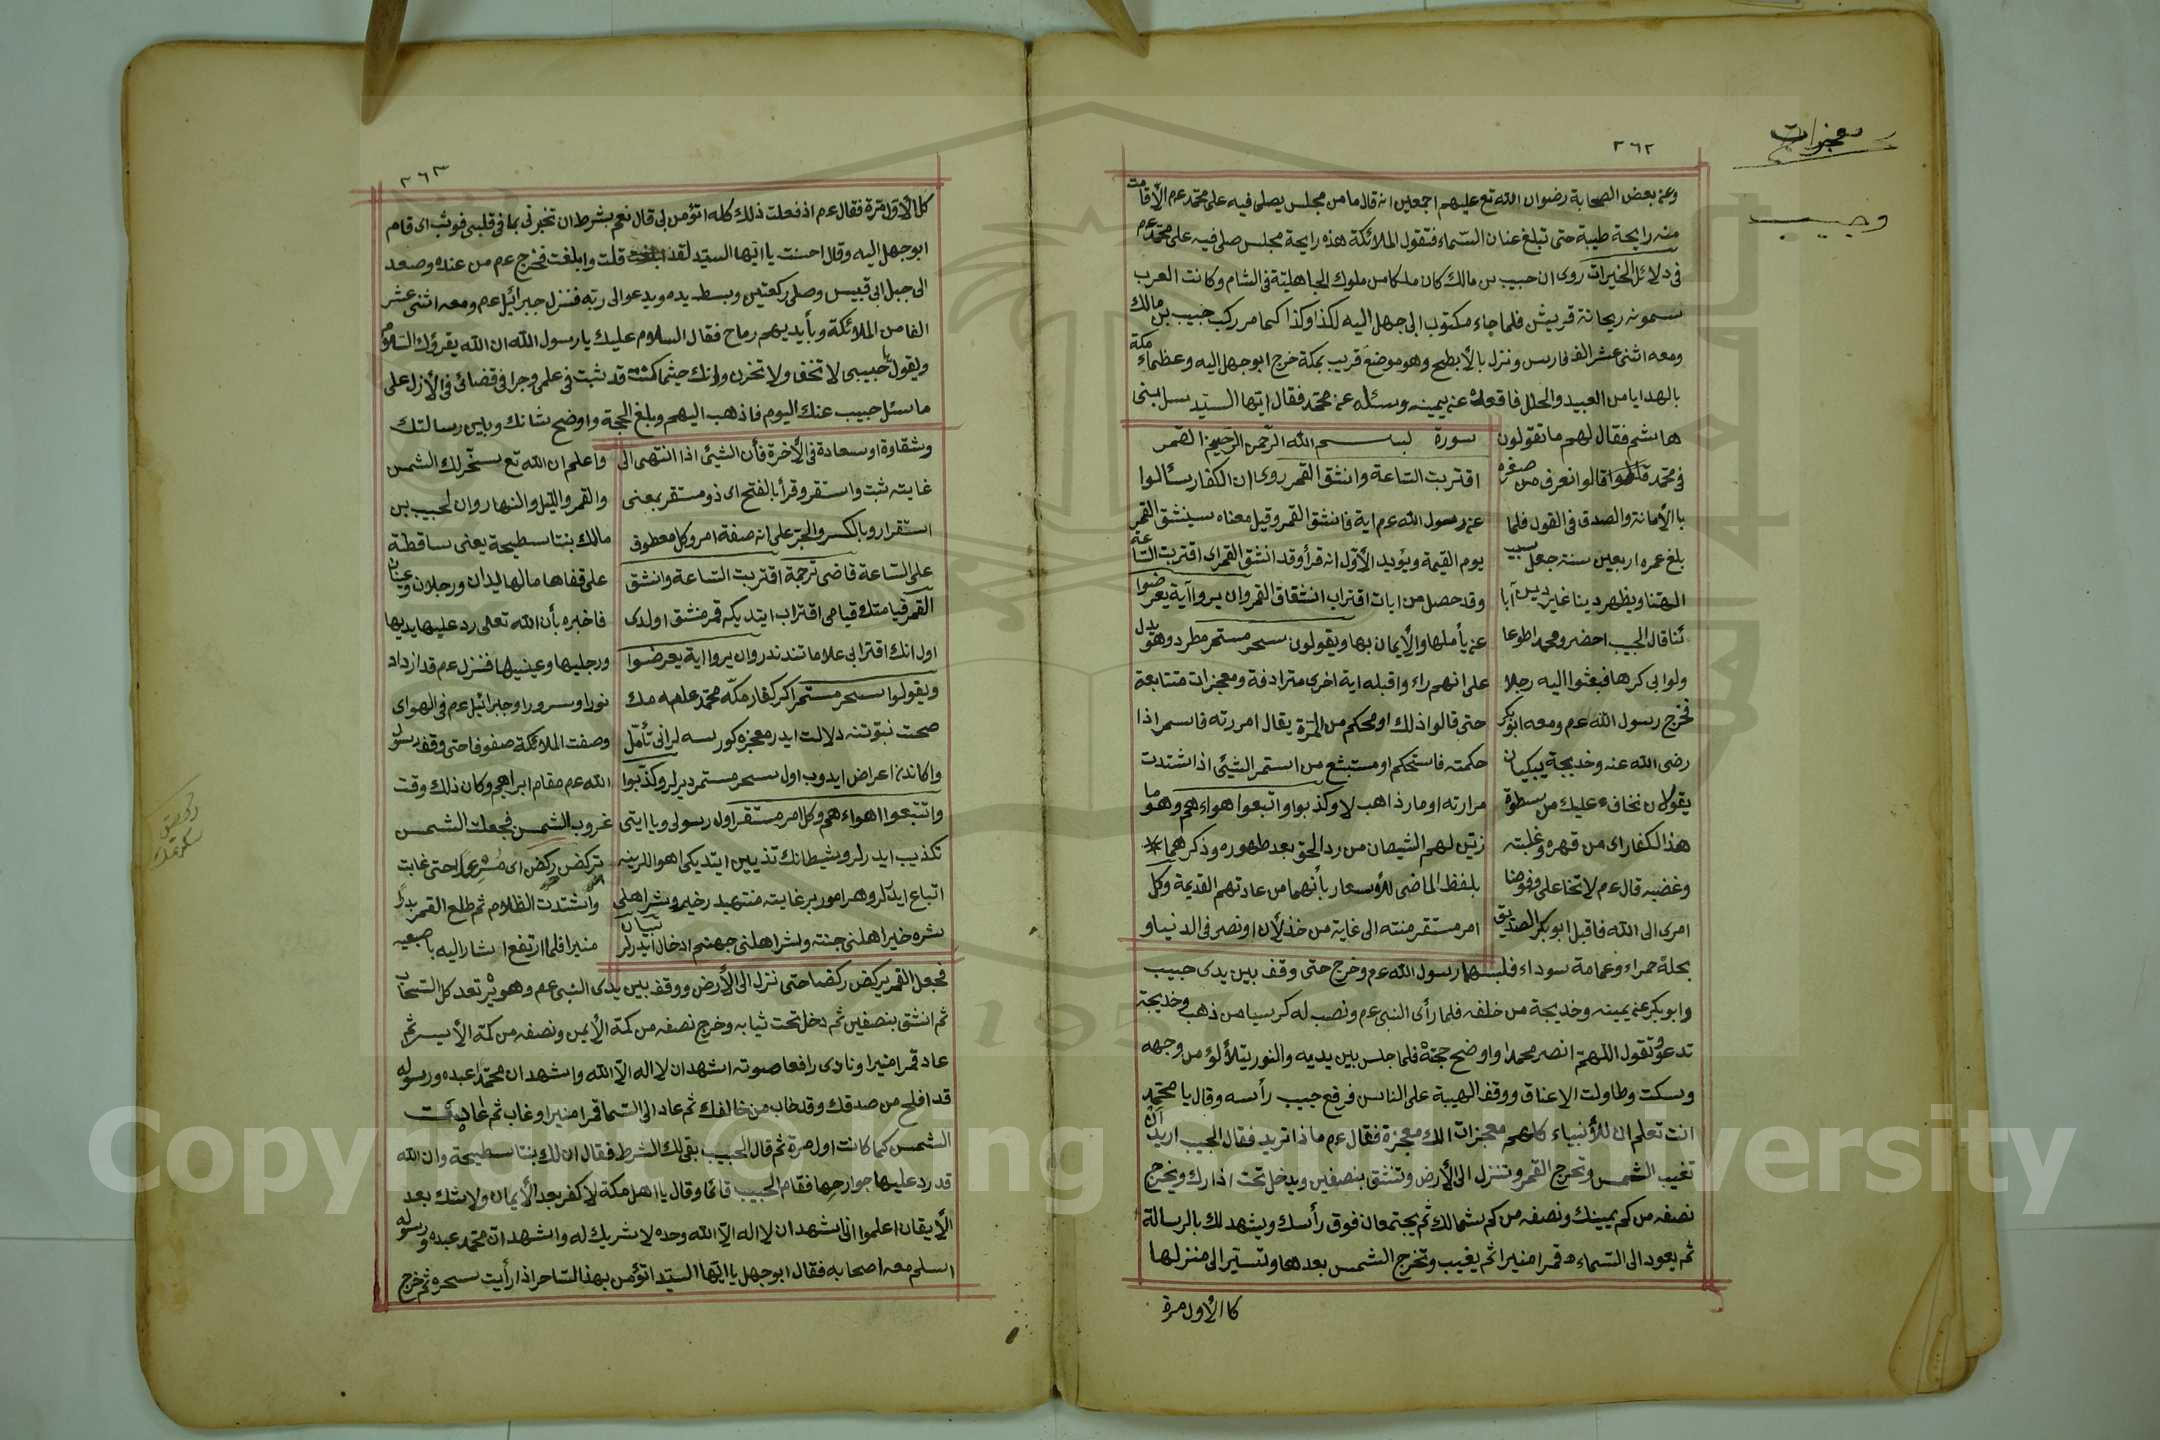 معجزات
وحبيب
٣٦٢
وعن بعض الصحابة رضوان الله تع عليهم اجمعين انه قال ما من مجلس يصلى فيه على محمد عم الا قامت
منه رايحة طيبة حتى تبلغ عنان السماء فتقول الملائكة هذه رايحة مجلس صلى فيه على محمد عم
فى دلائل الخيرات روى ان حبيب بن مالك كان ملكا من ملوك الجاهلية فى الشام وكانت العرب
يسمونه ريحانة قريش فلما جاء مكتوب ابى جهل اليه لكذا وكذا كما مر ركب حبيب بن مالك
ومعه اثنى عشر الف فارس ونزل بالأبطح وهو موضع قريب بمكة خرج ابو جهل اليه وعظماء مكة
بالهدايا من العبيد والحلل فاقعده عن يمينه وسئله عن محمد فقال ايها السيد سل بنى
هاشم فقال لهم ما تقولون
فى محمد قالوا نعرف من صغره
باالأمانة والصدق فى القول فلما
بلغ عمره اربعين سنة جعل يسب
الهتنا ويظهر دينا غير دين آبا
ئنا قال الحبيب احضر ومحمدا طوعا
ولو ابى كرها فبعثوا اليه رجلا
فخرج رسول الله عم ومعه ابو بكر
رضى الله عنه وخديجة يبكيان
يقولان نخاف عليك من سطوة
هذا الكفار اى من قهره وغلبته
وغضبه قال عم لا تخفا على وفوضا
امرى الى الله فاقبل ابو بكر الصديق
سورة بسم الله الرحمن الرحيم القمر
اقتربت الساعة وانشق القمر روى ان الكفار سألوا
عن رسول الله عم اية فانشق القمر وقيل معناه سينشق القمر
يوم القيمة ويؤيد الأول انه قرأ وقد انشق القمر اى اقتربت الساعة
وقد حصل من ايات اقتراب انشقاق القمر وان يروا آية يعرضوا
عن تأملها والأيمان بها ويقولون سحر مستمر مطرد وهو يدل
على انهم راء واقبله اية اخرى مترادفة ومعجزات متتابعة
حتى قالوا ذلك او محكم من المرة يقال امررته فاستمر اذا
حكمته فاستحكم او مستبشع من استمر الشيئ اذ اشتدت
مرارته او مار ذاهب لا وكذبوا واتبعوا اهواءهم وهو ما
زين لهم الشيطان من رد الحق بعد ظهوره وذكرهما
بلفظ الماضى للأشعار بأنهما من عادتهم القديمة وكل
امر مستقر منته الى غاية من خذلان او نصر فى الدنيا و
بحلة حمراء وعمامة سوداء فلبسها رسول الله عم وخرج حتى وقف بين يدى حبيب
وابو بكر عن يمينه وخديجة من خلفه فلما رأى النبى عم ونصب له كرسيا من ذهب وخديجة
تدعو وتقول اللهم انصر محمدا واوضح حجته فلما جلس بين يديه والنور يتلألؤ من وجهه
وسكت وطاولت الاعناق ووقف الهيبة على الناس فرفع حبيب رأسه وقال يا محمد
انت تعلم ان للأنبياء كلهم معجزات الك معجزة فقال عم ماذا تريد فقال الحبيب اريد ان
تغيب الشمس وتخرج القمر وتنزل الى الأرض وتنشق بنصفين ويدخل تحت اذارك ويخرج
نصفه من كم يمينك ونصفه من كم شمالك ثم يجتمعان فوق رأسك ويشهد لك بالرسالة
ثم يعود الى السماء قمرا منيرا ثم يغيب وتخرج الشمس بعدها وتستير الى منزلها
كا الأول مرة
٣٦٣
كل الأول مرة فقال عم اذ فعلت ذلك كله اتؤمن بى قال نعم بشرط ان تخبرنى بما فى قلبى فوثب اى قام
ابو جهل اليه وقال احسنت يا ايها السيد لقد قلت وابلغت فخرج عم من عنده وصعد
الى جبل ابى قبيس وصلى ركعتين وبسط يده ويدعو الى ربه فنزل جبرائيل عم ومعه اثنى عشر
الفا من الملائكة وبأيديهم رماح فقال السلام عليك يا رسول الله ان الله يقرؤك السلام
ويقول يا حبيبى لا تخف ولا تحزن وانك حيثما كنت قد ثبت فى علمى وجرا فى قضائى فى الأزل على
ما سئل حبيب عنك اليوم فاذهب اليهم وبلغ الحجة واوضح شانك وباين رسالتك
وشقاوة او سعادة فى الأخرة فأن الشيئ اذا انتهى الى
غايته ثبت واستقر وقرأ بالفتح اى ذو مستقر بمعنى
استقرار وبالكسر والجر على انه صفة امر وكل معطوف
على الساعة قاضى ترجمة اقتربت الساعة وانشق
القمر قيامتك قيامى اقتراب ايتديكه قمر منشق اولدى
اول انك اقترابى علاماتندندر وان يروا اية يعرضوا
ويقولوا سحر مستمر اكر كفار مكه محمد علمه مك
صحت نبوتنه دلالت ايدر معجزه كورسه لر انى تأمل
واكا دن اعراض ايدوب اول سحر مستمر ديرلر وكذبوا
واتبعوا اهواءهم وكل امر مستقر اول رسولى ويا ايتى
تكذيب ايدرلر وشيطانك تزيين ايتديكى اهوالرينه
اتباع ايدرلر وهر امور بر غايته منتهيدر خير وشر اهلى
شره خير اهلنى جنته وشر اهلنى جهنم ادخال ايدرلر تبيان
واعلم ان الله تع سخر لك الشمس
والقمر والليل والنهار وان لحبيب بن
مالك بنتا سطيحة يعنى ساقطة
على قفاها ما لها يدان ورجلان وعينان
فاخبره بأن الله تعلى رد عليها يديها
ورجليها وعينيها فنزل عم قد ازداد
نورا وسرورا وجبرائيل عم فى الهواى
وصفت الملائكة صفوفا حتى وقف رسول
الله عم مقام ابراهيم وكان ذلك وقت
غروب الشمس فجعلت الشمس
تركض ركض اى مسرعا حتى غابت
واشتدت الظلام ثم طلع القمر بدرا
منيرا فلما ارتفع اشار اليه باصبعيه
فجعل القمر يركض ركضا حتى نزل الى الأرض ووقف بين يدى النبى عم وهو يرتعد كل السحاب
ثم انشق بنصفين ثم دخل تحت ثيابه وخرج نصفه من كمه الأيمن ونصفه من كمه الأيسر ثم
عاد قمرا منيرا ونادى رافعا صوته اشهد ان لا اله الا الله واشهد ان محمدا عبده ورسوله
قد افلح من صدقك وقد خاب من خالفك ثم عاد الى السما قمرا منيرا وغاب ثم عادت
الشمس كما كانت اول مرة ثم قال الحبيب بقى لك الشرط فقال ان لك بنتا سطيحة وان الله
قد رد عليها جوارحها فقام الحبيب قائما وقال يا اهل مكة لا كفر بعد الأيمان ولا شك بعد
الأيقان اعلموا انى اشهد ان لا اله الا الله وحده لا شريك له واشهد ان محمد عبده ورسوله
اسلم معه اصحابه فقال ابو جهل يا ايها السيد اتؤمن بهذا الساحر اذا رأيت سحره ثم خرج
Copyright © King Saud University
195